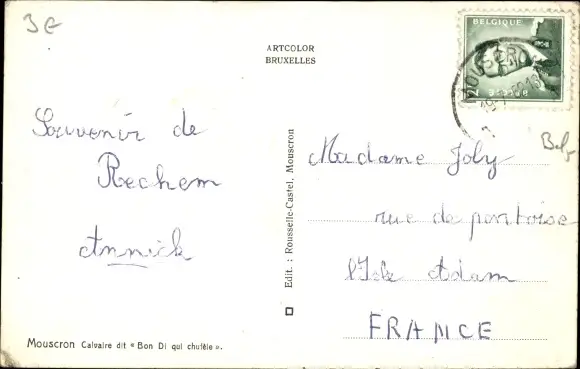 3€
ARTCOLOR
BRUXELLES
BELGIQUE
BELGIE
MOUSCRON
Souvenir de
Rechem
Annick
Edit. : Rousselle-Castel, Mouscron
Madame Joly
rue de pontoise
l'Isle Adam
FRANCE
Mouscron Calvaire dit « Bon Di qui chufèle ».